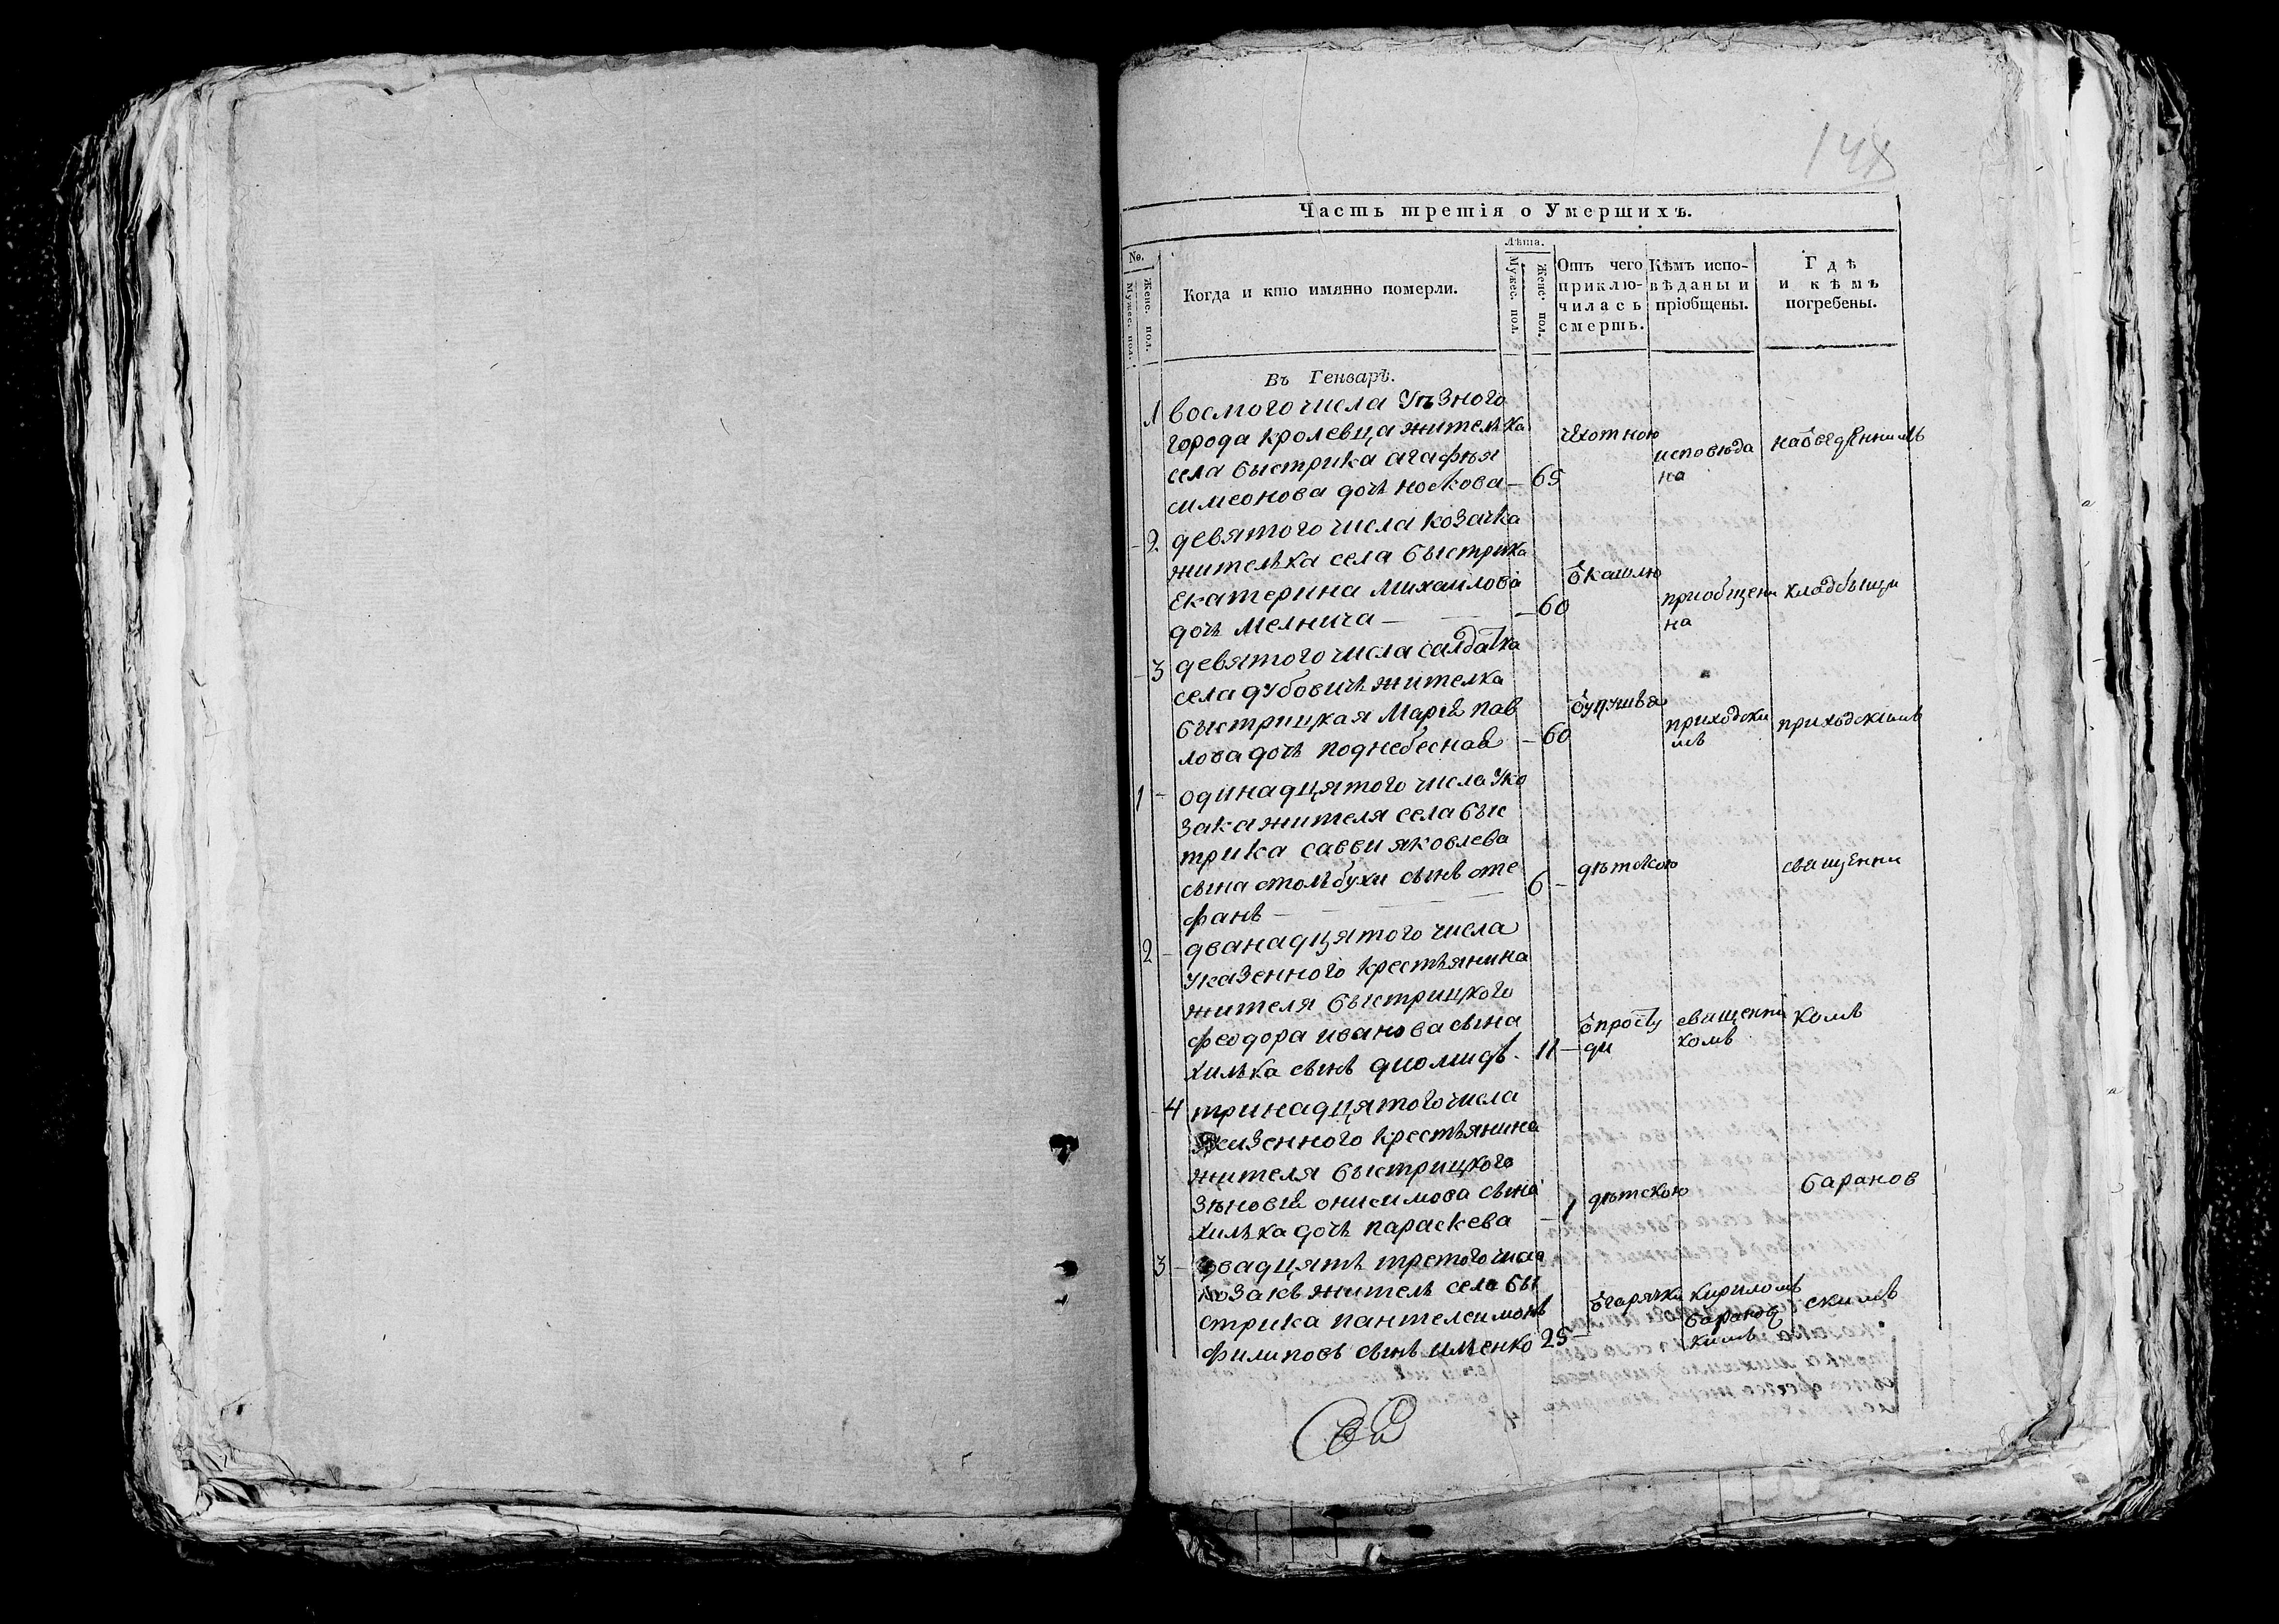 148
Часть третія о Умершихъ.
№.
Мужес. пол.
Женс. пол.
Когда и кто имянно померли.
Лѣта.
Мужес. пол.
Женс. пол.
Отъ чего
приклю-
чилась
смерть.
Кѣмъ испо-
вѣданы и
пріобщены.
Гдѣ
и кѣмъ
погребены.
Въ Генварѣ.
1 восмого числа
города кролевца жителька
села быстрика агафья
симеонова дочь носкова — 65
чхотною
исповѣда
на
— 2 девятого числа козачка
жителька села быстрика
Екатерина михаилова
дочь мелнича — — 60
ѿкашлю
приобщен
на
кладбыщи
— 3 девятого числа салдатка
села дубовичь жителка
быстрицкая Марія пав
лова дочь поднебесная — 60
приходски
мъ
приходскимъ
1 — одинадцятого числа уко
зака жителя села быс
трика саввы яковлева
сына столъбухи сынъ сте
фанъ — 6 —
дѣтскою
священни
2 — дванадцятого числа
указенного крестьянина
жителя быстрицкого
феодора иванова сына
хилька сынъ диомидъ. 11 —
ѿпросту
ди
священни
комъ
комъ
— 4 тринадцятого числа
казенного крестьянина
жителя быстрицкого
зѣновія онисимова сына
хилька дочь параскева — 1
дѣтскою
баранов
3 — двадцять третого числа
козакъ житель села бы
стрика пантелеимонъ
филиповъ сынъ именко 25 —
ѿгарячки
кириломъ
баранов
кимъ
скимъ